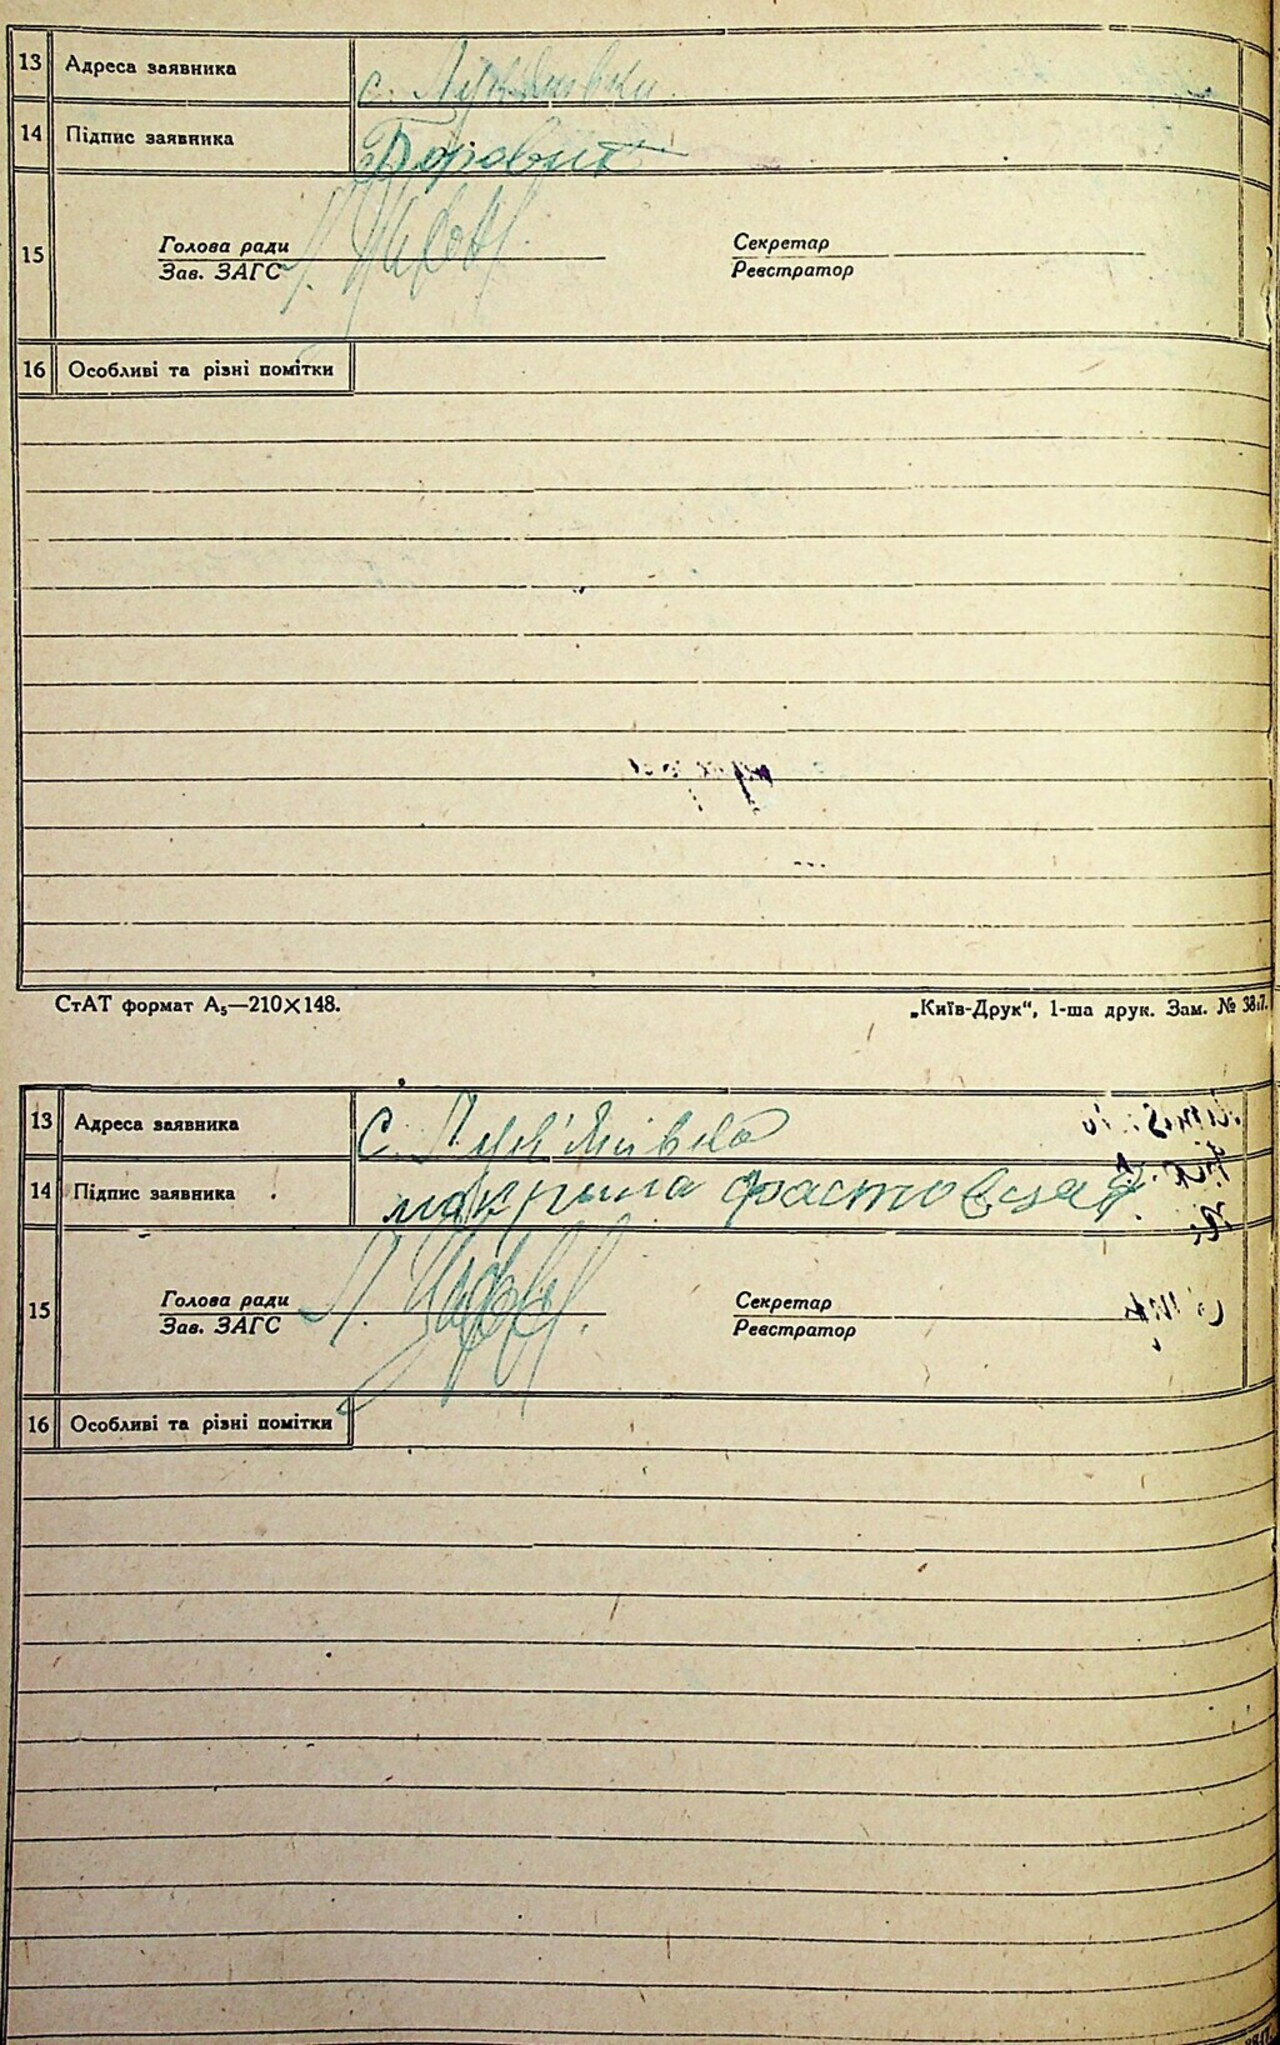 13 Адреса заявника с. Лук'янівка
14 Підпис заявника Боровик
15 Голова ради Секретар
Зав. ЗАГС Реєстратор
16 Особливі та різні помітки
СтАТ формат А₅—210×148. „Київ-Друк“, 1-ша друк. Зам. №
13 Адреса заявника с. Лук'янівка
14 Підпис заявника макрина фастовець
15 Голова ради Секретар
Зав. ЗАГС Реєстратор
16 Особливі та різні помітки